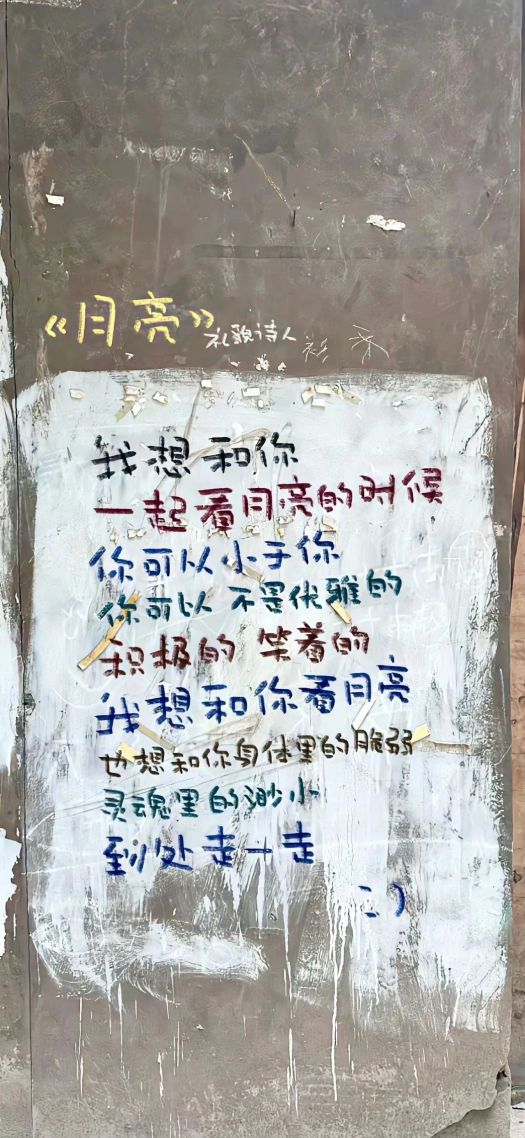 《月亮》 礼貌诗人
我想和你
一起看月亮的时候
你可以小于你
你可以 不是优雅的
积极的 笑着的
我想和你看月亮
也想和你身体里的脆弱
灵魂里的渺小
到处走一走
:)